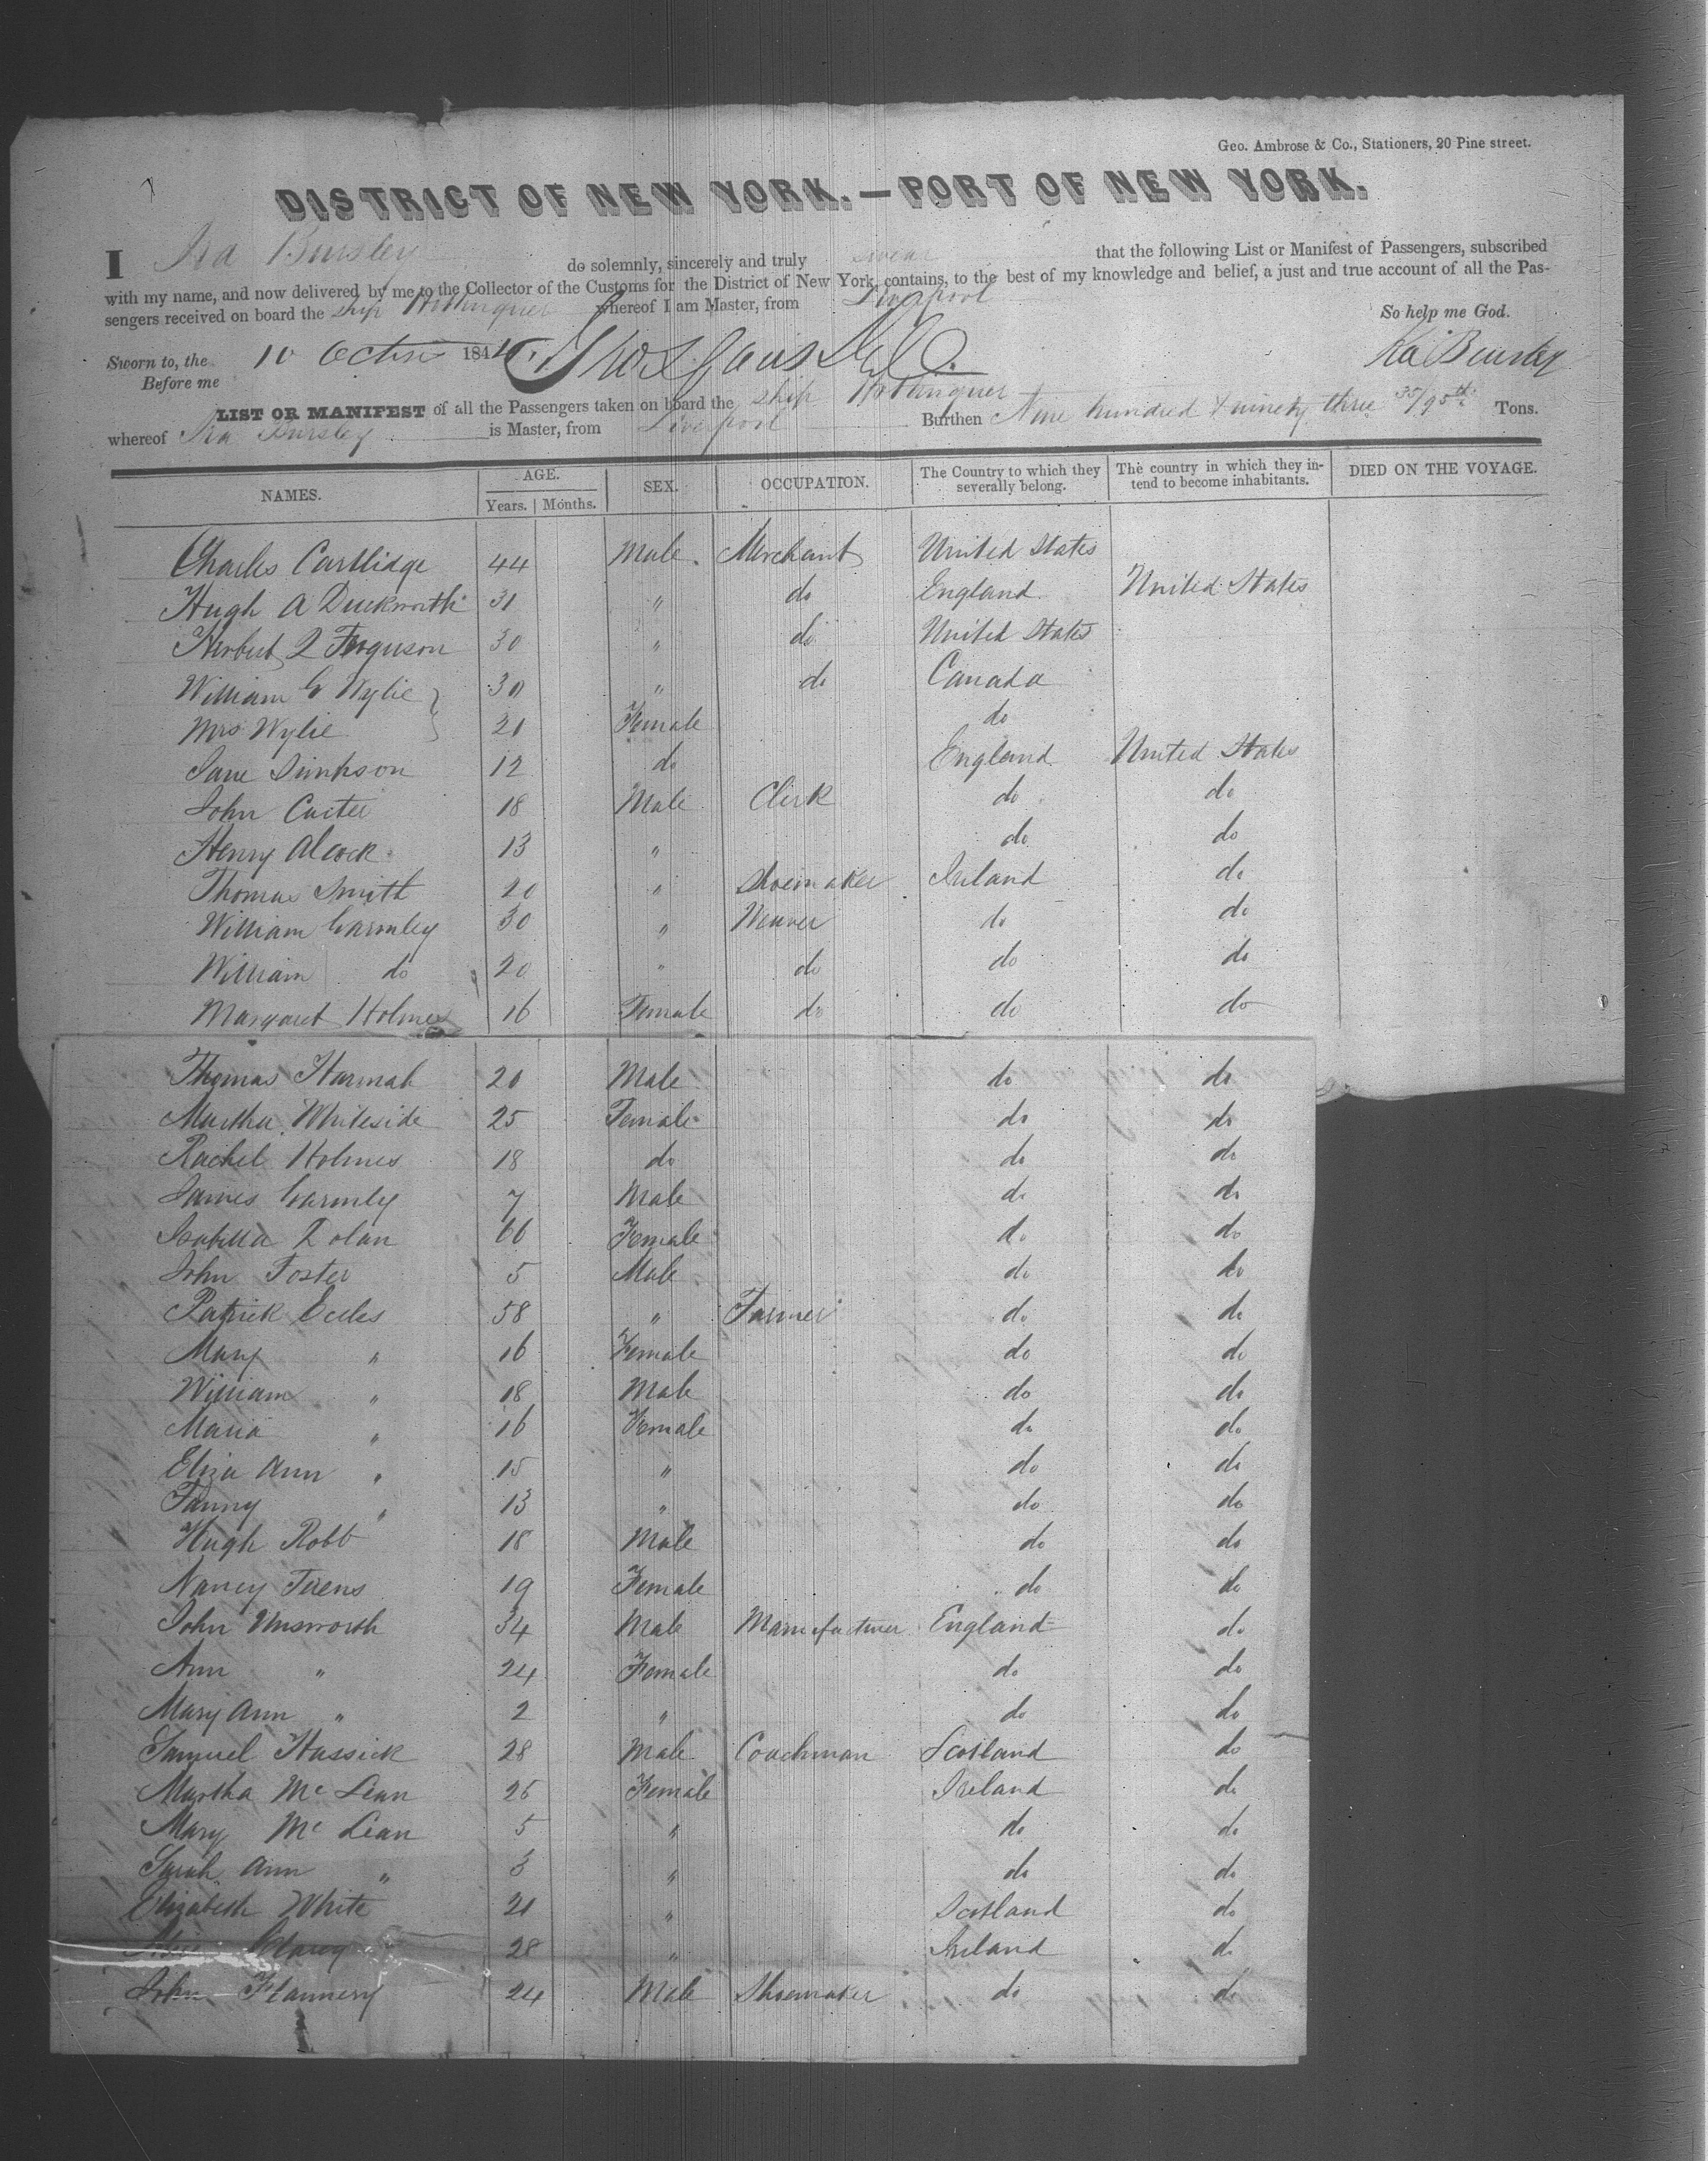 Geo. Ambrose & Co., Stationers, 20 Pine street.
DISTRICT OF NEW YORK.—PORT OF NEW YORK.
I Ira Bursley do solemnly, sincerely and truly swear that the following List or Manifest of Passengers, subscribed
with my name, and now delivered by me to the Collector of the Customs for the District of New York, contains, to the best of my knowledge and belief, a just and true account of all the Pas-
sengers received on board the ship Hottinguer whereof I am Master, from Liverpool
So help me God.
Sworn to, the 10 Octr 184
Before me
Ira Bursley
LIST OR MANIFEST of all the Passengers taken on board the ship Hottinguer
whereof Ira Bursley is Master, from Liverpool Burthen Nine hundred & ninety three 35/95th Tons.
NAMES. AGE. Years. Months. SEX. OCCUPATION. The Country to which they severally belong. The country in which they intend to become inhabitants. DIED ON THE VOYAGE.
Charles Cartlidge 44 Male. Merchant United States
Hugh A Duckworth 31 " do England United States
Herbert Q Ferguson 30 " do United States
William G Wylie } 30 " do Canada
Mrs Wylie } 21 Female do
Jane Simpson 12 do England United States
John Carter 18 Male Clerk do do
Henry Alcock 13 " do do
Thomas Smith 20 " Shoemaker Ireland do
William Carmley 30 " Weaver do do
William do 20 " do do do
Margaret Holmes 16 Female do do do
Thomas Harmah 20 Male do do
Martha Whiteside 25 Female do do
Rachel Holmes 18 do do do
James Carmly 7 Male do do
Isabella Dolan 66 Female do do
John Foster 5 Male do do
Patrick Eccles 58 " Farmer do do
Mary " 16 Female do do
William " 18 Male do do
Maria " 16 Female do do
Eliza Ann " 15 " do do
Fanny " 13 " do do
Hugh Robb 18 Male do do
Nancy 19 Female do do
John Unsworth 34 Male Manufacturer England do
Ann " 24 Female do do
Mary Ann " 2 " do do
Samuel Hassick 28 Male Coachman Scotland do
Martha Mc Lean 25 Female Ireland do
Mary Mc Lean 5 " do do
Sarah Ann " 3 " do do
Elizabeth White 21 " Scotland do
28 " Ireland do
John Flannery 24 Male Shoemaker do do